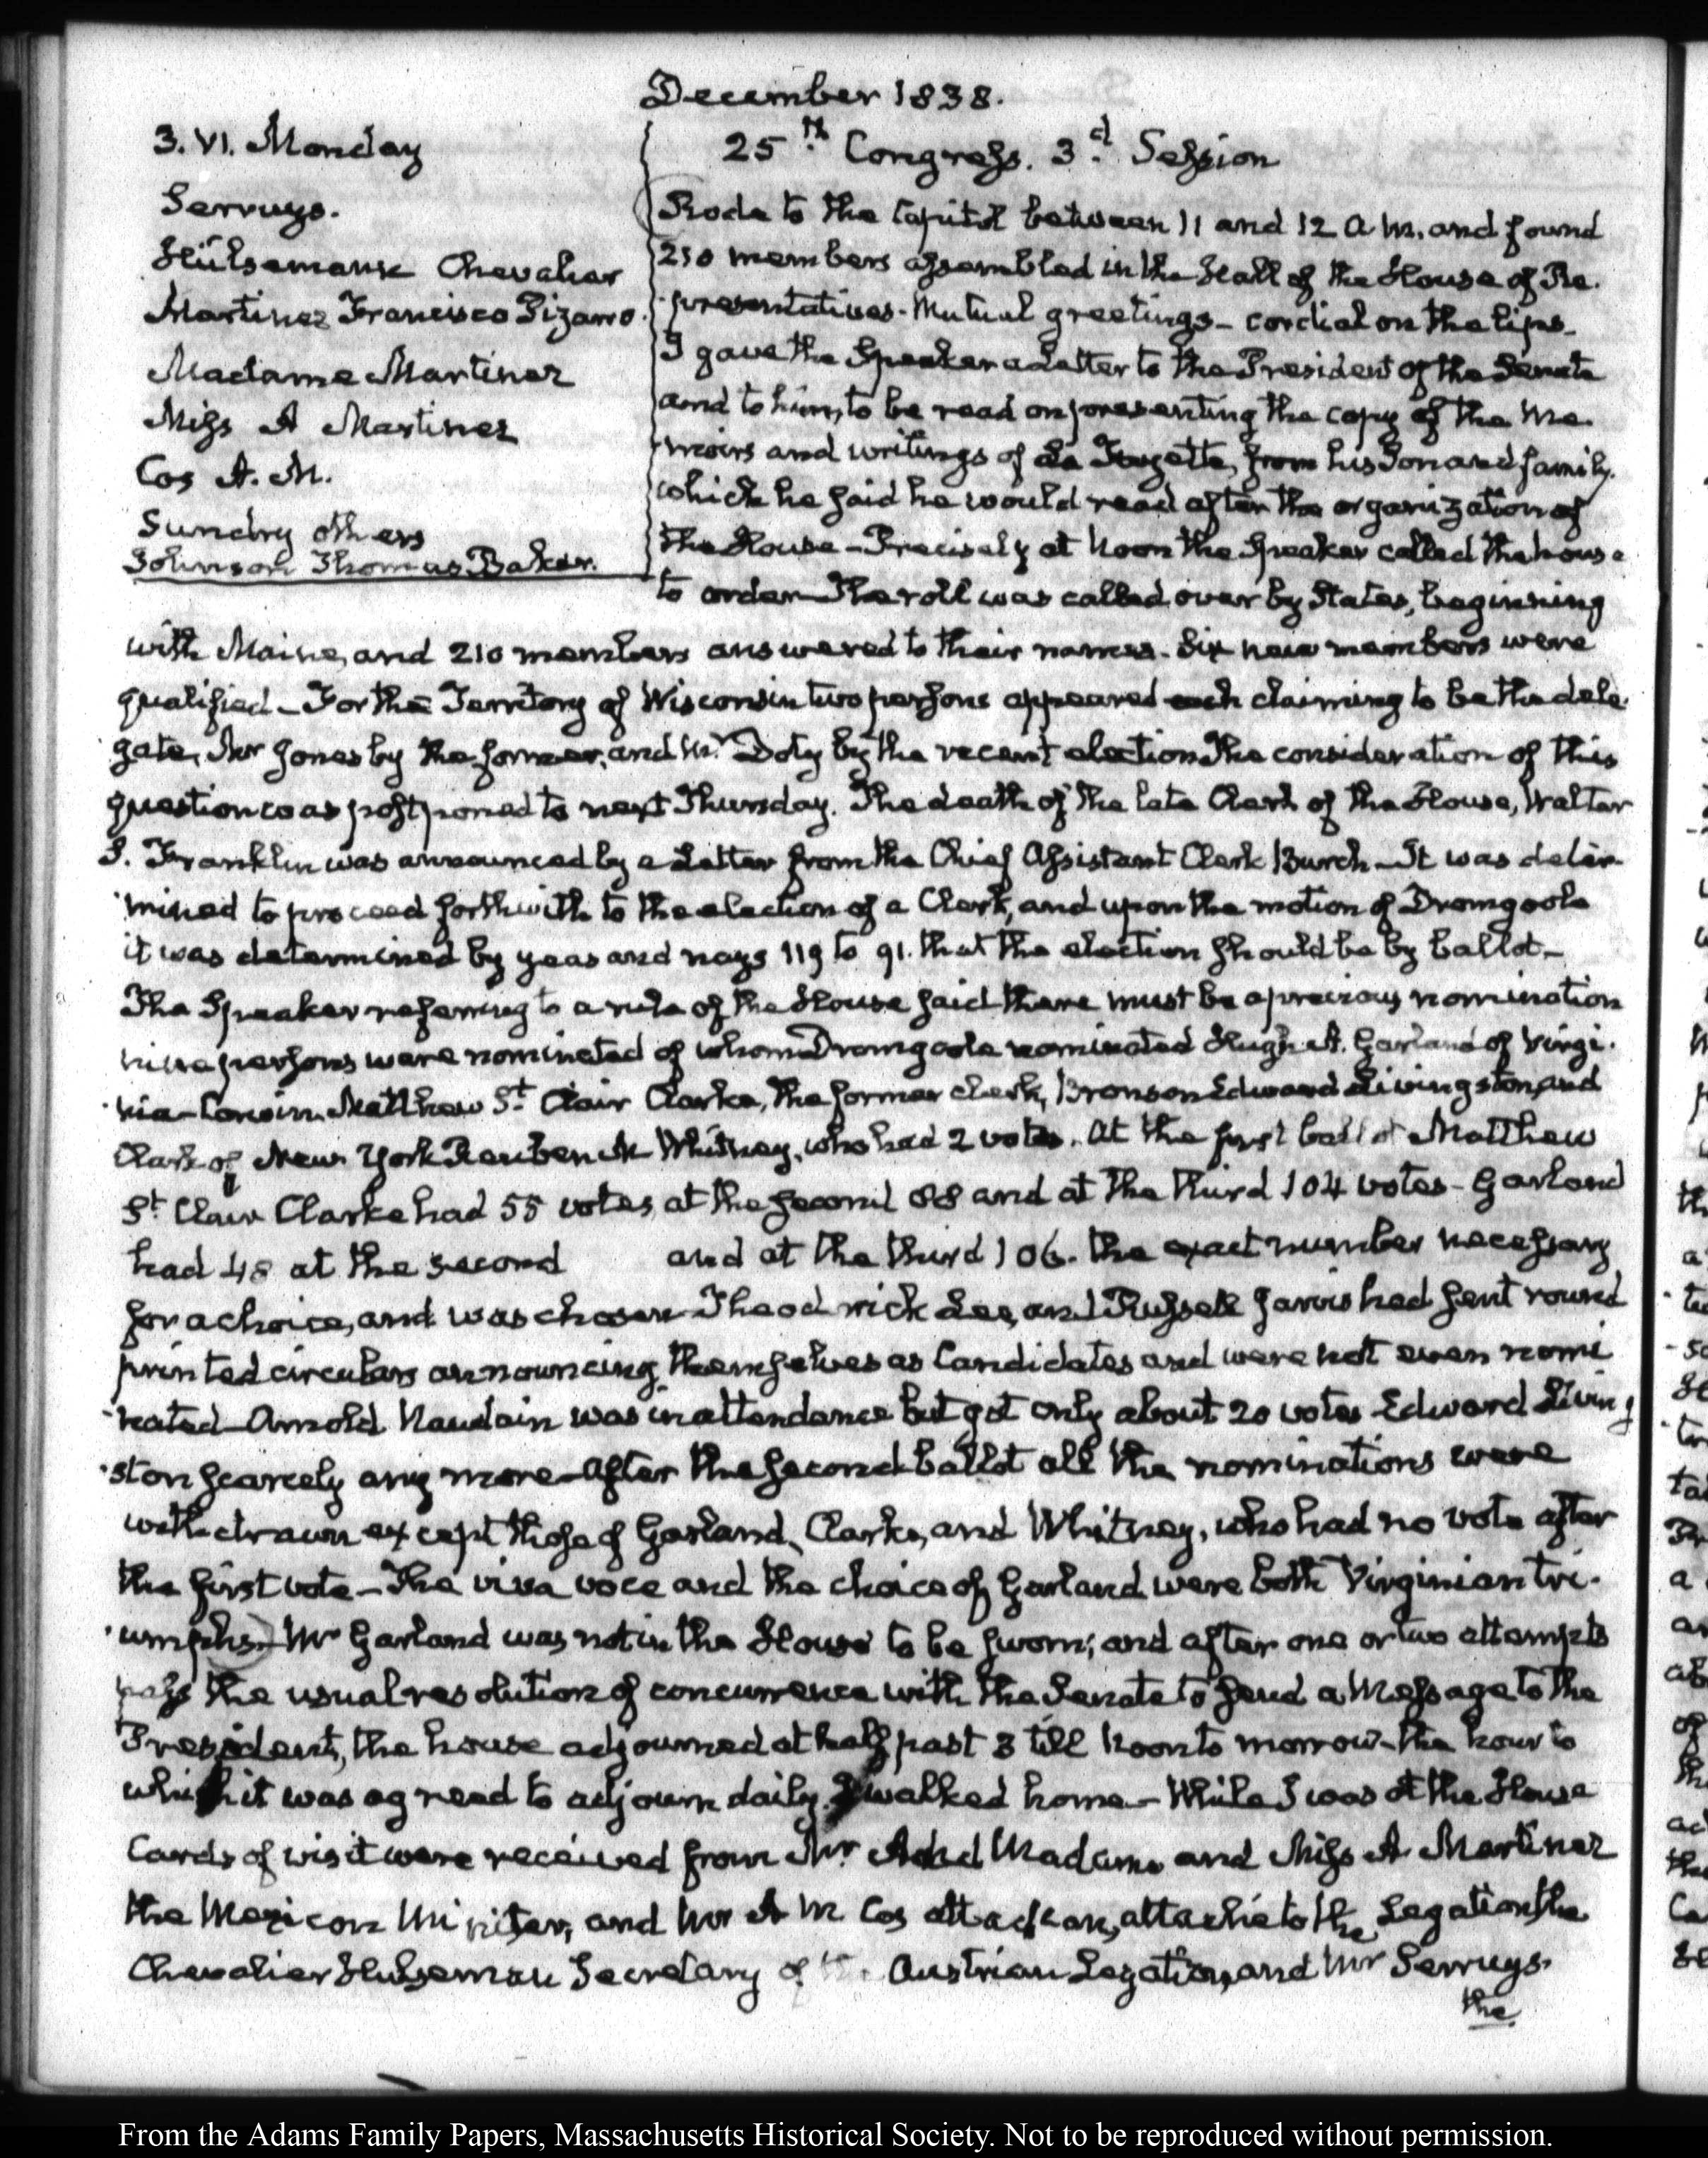 December 1838.
3. VI. Monday
Serruys.
Hülsemann Chevalier
Martinez Francisco Pizarro.
Madame Martinez
Miss A Martinez
Cos A. M.
Sundry others
Johnson Thomas Baker.
25th Congress. 3d Session
Rode to the Capitol between 11 and 12 A.M. and found
210 members assembled in the Hall of the House of Re-
presentatives. Mutual greetings – cordial on the lips –
I gave the Speaker a Letter to the President of the Senate
and to him, to be read on presenting the copy of the Me-
moirs and writings of La Fayette, from his Son and family.
which he said he would read after the organization of
the House – Precisely at Noon the Speaker called the house
to order – The roll was called over by States, beginning
with Maine, and 210 members answered to their names. Six new members were
qualified – For the Territory of Wisconsin two persons appeared each claiming to be the dele-
gate, Mr Jones by the former, and Mr Doty by the recent election The consideration of this
question was postponed to next Thursday. The death of the late Clerk of the House, Walter
S. Franklin was announced by a Letter from the Chief Assistant Clerk Burch – It was deter-
mined to proceed forthwith to the election of a Clerk, and upon the motion of Dromgoole
it was determined by yeas and nays 119 to 91. that the election should be by ballot –
The Speaker referring to a rule of the House said there must be a previous nomination
nine persons were nominated of whom Dromgoole nominated Hugh A. Garland of Virgi-
nia – Corwin. Matthew St Clair Clarke, the former clerk, Bronson Edward Livingston, and
Clark of New York Reuben M Whitney, who had 2 votes. At the first ballot Matthew
St Clair Clarke had 55 votes, at the second 88 and at the third 104 votes – Garland
had 48 at the second and at the third 106. the exact number necessary
for a choice, and was chosen Theodrick Lee, and Russell Jarvis had sent round
printed circulars announcing themselves as Candidates and were not even nomi-
nated – Arnold Naudain was in attendance but got only about 20 votes Edward Living-
ston scarcely any more – After the second ballot all the nominations were
withdrawn except those of Garland, Clarke, and Whitney, who had no vote after
the first vote – The viva voce and the choice of Garland were both Virginian tri-
umphs. Mr Garland was not in the House to be sworn; and after one or two attempts
pass the usual resolution of concurrence with the Senate to send a Message to the
President, the house adjourned at half past 3 till Noon to morrow – the hour to
which it was agreed to adjourn daily. I walked home – While I was at the House
Cards of visit were received from Mr and Madame and Miss A Martinez
the Mexican Minister, and Mr A M Cos attaché to the Legation the
Chevalier Hulseman Secretary of the Austrian Legation, and Mr Serruys.
the
From the Adams Family Papers, Massachusetts Historical Society. Not to be reproduced without permission.